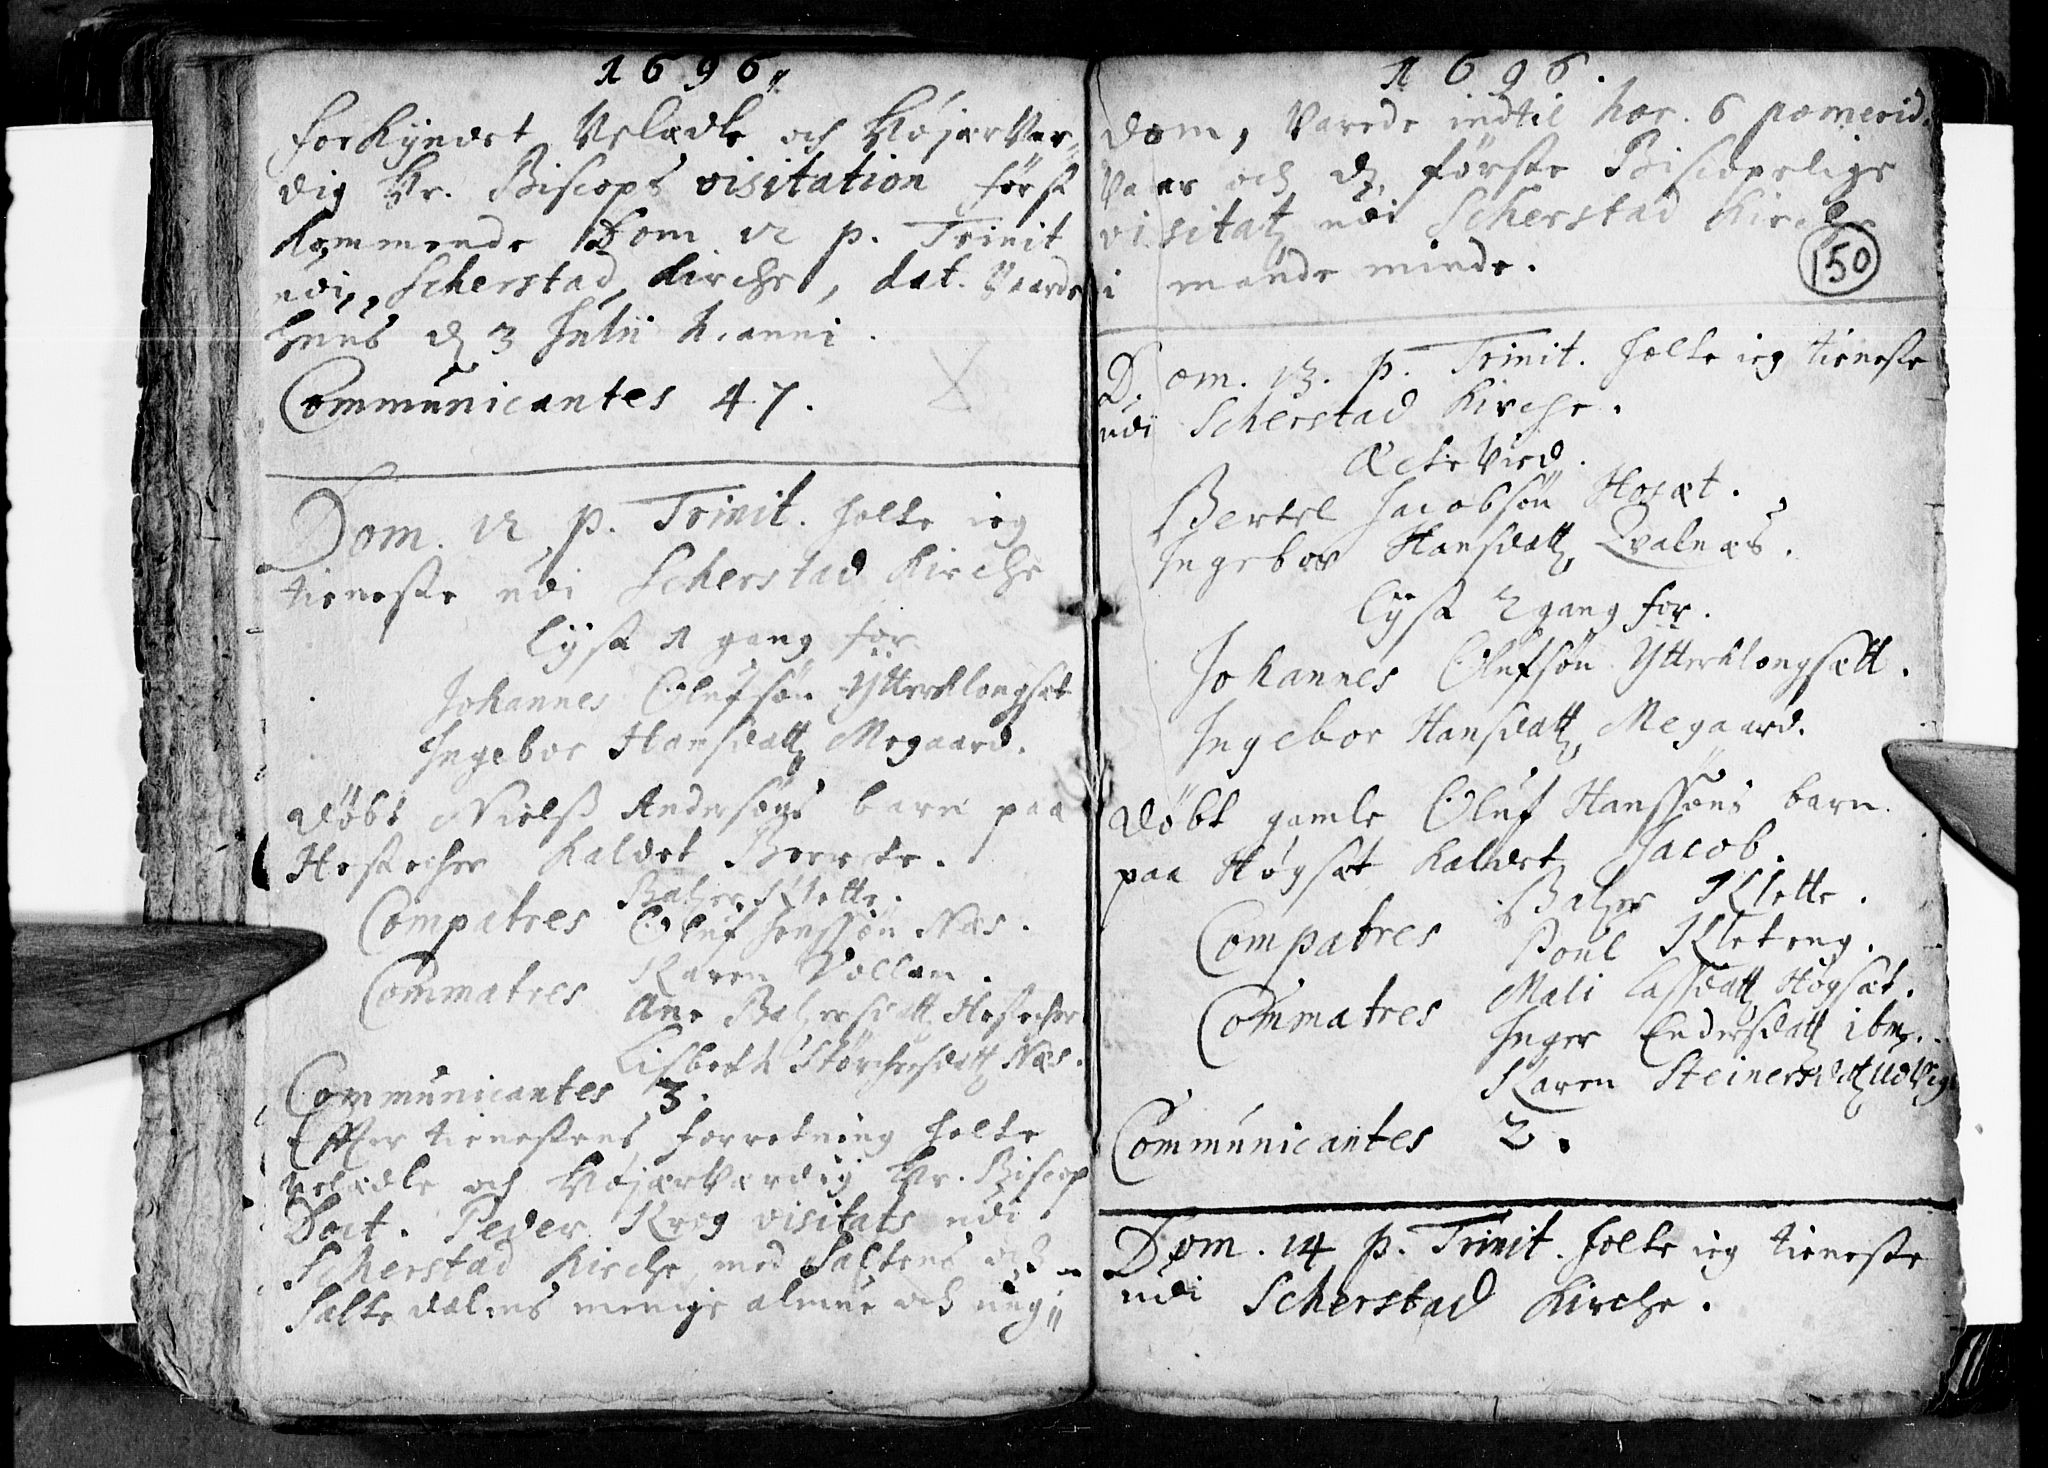 1696,,
forkyndet Velædle och Højærvær,,
dig Hr. Biscops visitation først
kommende Dom. 12 p. Trinit
udi Scherstad Kirche, dat. Vaarde
huus d. 3 Julii h. anni.
Communicantes 47.
Dom. 12 p. Trinit. holte ieg
tieneste udi Scherstad Kirche
lyst 1 gang for
Johannes Olufsøn Ytterklongset
Ingebor Hansdatt. Megaard.
døbt Nielß Andersøns barn paa
Hestecher kaldet Beercte.
Compatres Balzer Klette.
Oluf Jenssøn Næs.
Commatres Karen Vollan.
Ane Balzersdatt. Hestecher
Lisbeth Størchersdatt. Næs.
Communicantes 3.
Effter tienestens forretning holte
velædle och Højærværdig Hr. Biscop
Doct. Peder Krog visitats udi
Scherstad Kirche, med Saltens och
Salte dalens menige almue och ung,,
1696.
150
dom, varede indtil hor. 6 pomerid.
Vaar och d. første Biscopelige
visitatz udi Scherstad Kirche
i mande minde.
Dom. 13. p. Trinit. holte ieg tieneste
udi Scherstad Kirche.
Ecte Vied.
Bertel Jacobsøn Hosæt.
Ingebor Hansdatt. Qvalnæs.
lyst 2 gang for.
Johannes Olufsøn Ytterklongsætt.
Ingebor Hansdatt. Megaard.
døbt gamle Oluf Hanssøns barn
paa Høgsæt kaldet Jacob.
Compatres Balzer Klette.
Poul Kleteng.
Commatres Mali Lassdatt. Høgsæt.
Inger Endersdatt. ibm.
Karen Steinersdatt. Udvig
Communicantes 2.
Dom. 14 p. Trinit. holte ieg tieneste
udi Scherstad Kirche.